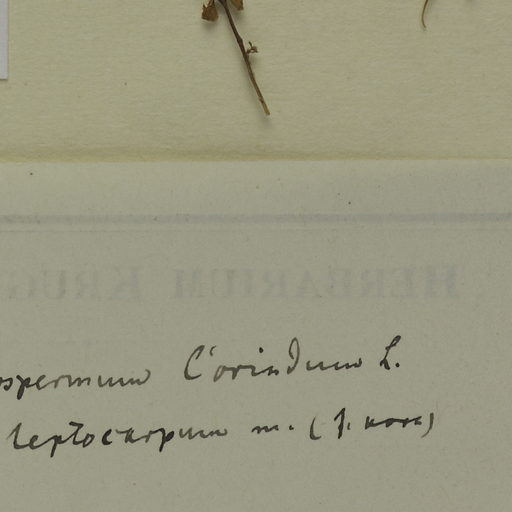 HERBARIUM KRUG
ospermum Corindum L.
leptocarpum m. (f. nova)